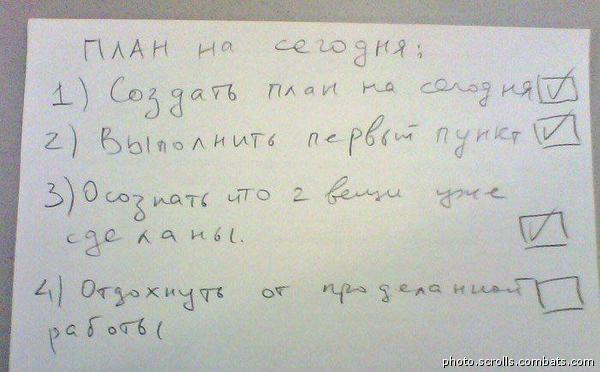 ПЛАН на сегодня:
1) Создать план на сегодня
2) Выполнить первый пункт
3) Осознать что 2 вещи уже
сделаны.
4) Отдохнуть от проделанной
работы
photo.scrolls.combats.com